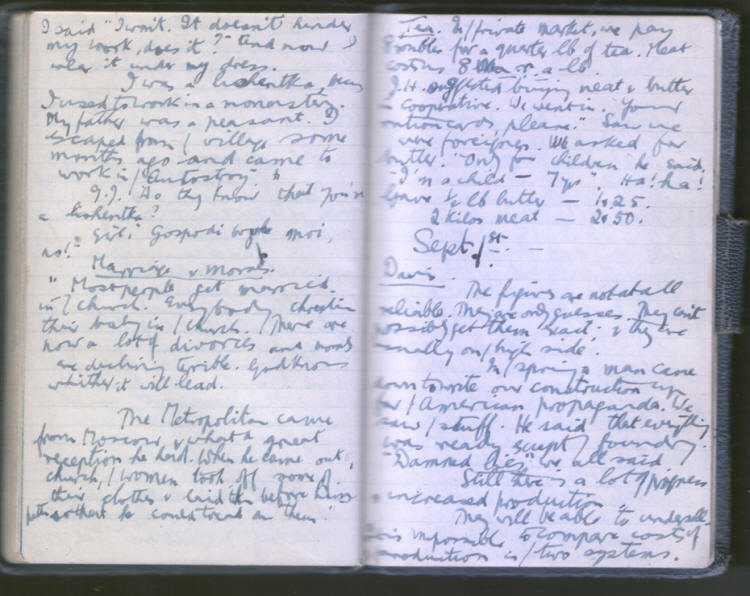 I said "I won't. It doesn't hinder
my work, does it?" And now I
wear it under my dress.
I was a lishentka, being
I used to work in a monastery.
My father was a peasant. I
escaped from / village some
months ago and came to
work in / Autostroy."
G.J. "Do they know that you're
a lishentka?"
Girl: Gospodi bozhe moi,
no!"
Marriage & Morals.
"Most people get married
in / church. Everybody christens
their baby in / church. There are
now a lot of divorces and morals
are declining terrible. God knows
whither it will lead.
The Metropolitan came
from Moscow, & what a great
reception he had. When he came out
church, / women took off some of
their clothes & laid them before him
so that he could tread on them!
Tea. In / private market, we pay
8 roubles for a quarter lb of tea. Meat
costs 8 a lb.
J.H. suggested buying meat & butter
Cooperative. We went in. "Your
ration cards, please." Saw we
were foreigners. We asked for
butter. "Only for children he said.
"I'm a child — 7 yrs". Ha! ha!
½ lb butter — 1.25.
2 kilos meat — 2.50.
Sept. 1st. —
Davis.
The figures are not at all
reliable. They are only guesses. They can't
possibly get them exact, & they are
usually on / high side.
In / spring a man came
down to write our construction up
for / American propaganda. We
saw / stuff. He said that everything
was ready except / foundry.
"Damned lies" we all said.
Still there is a lot of / progress
& increased production.
They will be able to undersell.
is impossible to compare costs of
production in / two systems.